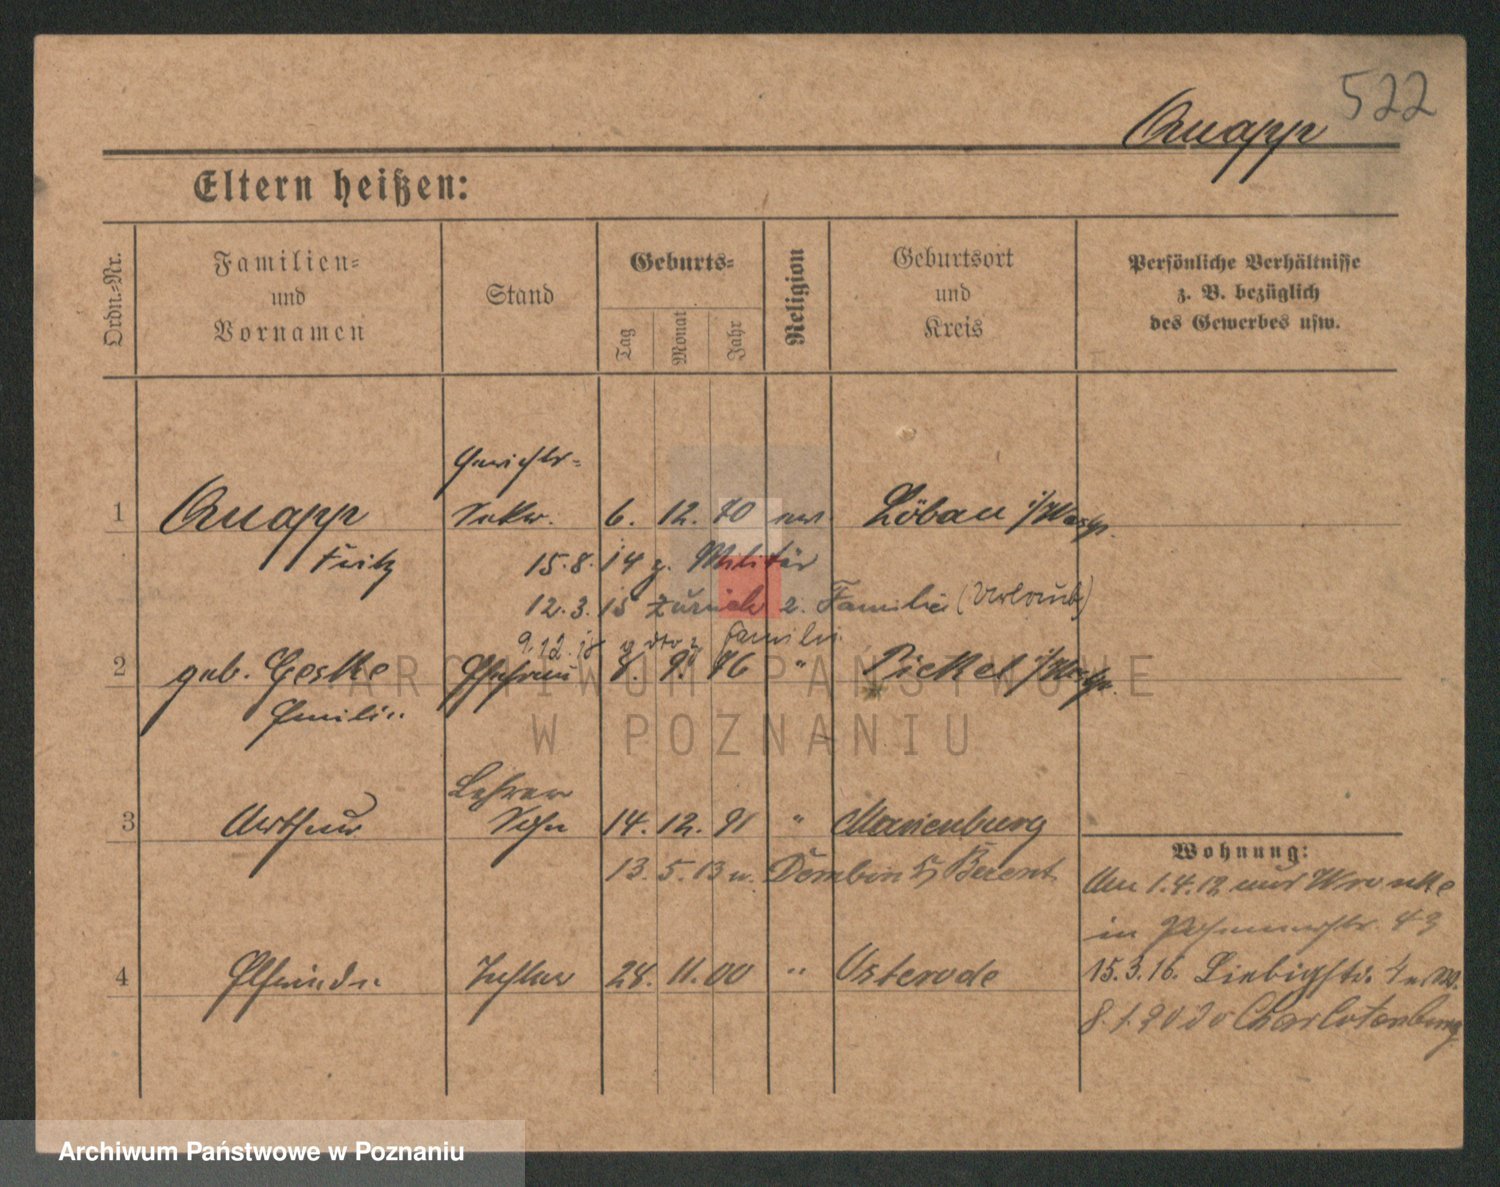 522
Knapp
Eltern heißen:
Ordn.-Nr.
Familien-
und
Vornamen
Stand
Geburts-
Tag
Monat
Jahr
Religion
Geburtsort
und
Kreis
Persönliche Verhältnisse
z. B. bezüglich
des Gewerbes usw.
Gerichts-
1 Knapp Sekr. 6. 12. 70 ev. Löbau i/Westpr.
Fritz 15.8.14 z. Militär
12.3.15 zurück z. Familie (Urlaub)
9.12.18 v. dto z. Familie
2 geb. Geske Ehefrau 8. 9. 76 " Pickel i/Westpr.
Emilie
Lehrer
3 Arthur Sohn 14. 12. 91 " Marienburg
13.5.13 n. Dembin Berent
4 Elfriede Tochter 28. 11. 00 " Osterode
Wohnung:
Am 1.4.12 aus Wronke
in 43
15.3.16. Liebigstr.
8.1.20 Charlottenburg
ARCHIWUM PAŃSTWOWE
W POZNANIU
Archiwum Państwowe w Poznaniu